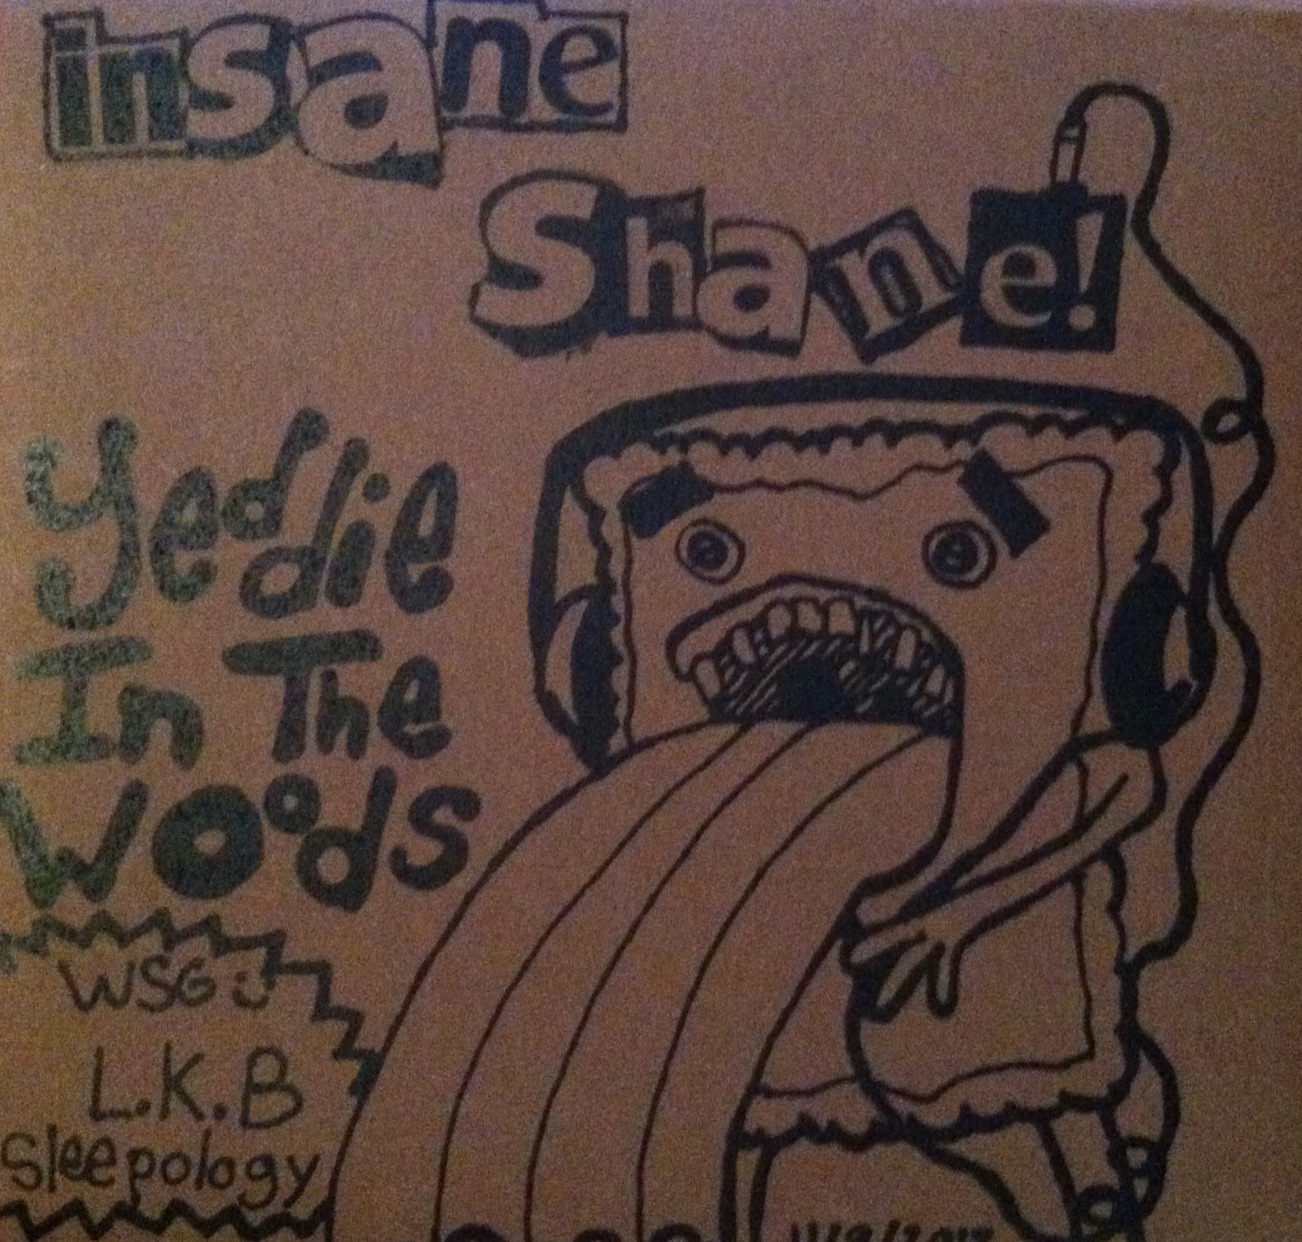 insane
Shane!
Yeddie
In The
Woods
WSG :)
L.K.B
Sleepology